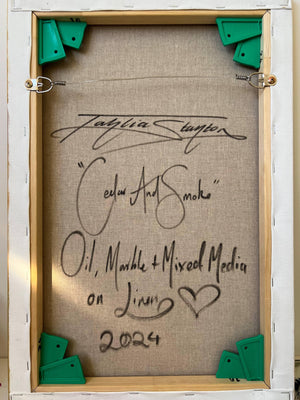 Taylia Stanton
"Cedar And Smoke"
Oil, Marble + Mixed Media
on Linen ♡
2024